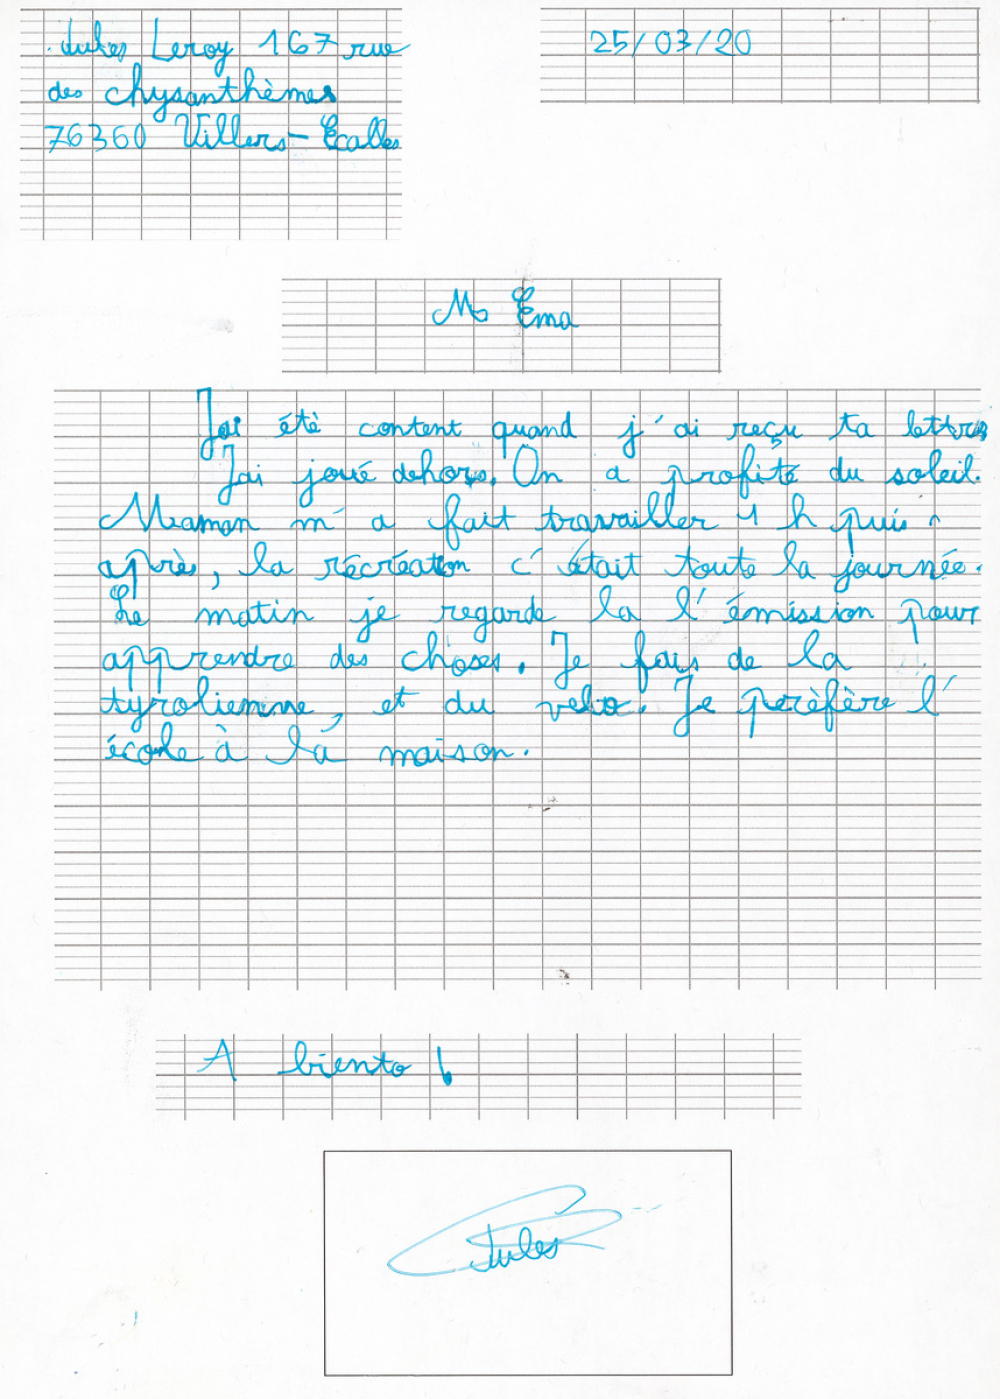 Jules Leroy 167 rue
des chysanthèmes
76360 Villers-Ecalles
25/03/20
Ema
J'ai été content quand j'ai reçu ta lettre
J'ai joué dehors. On a profité du soleil.
Maman m'a fait travailler 1 h puis
après, la récréation c'était toute la journée.
Le matin je regarde la l'émission pour
apprendre des choses. Je fais de la
tyrolienne, et du velo. Je perèfère l'
école à la maison.
A biento !
Jules